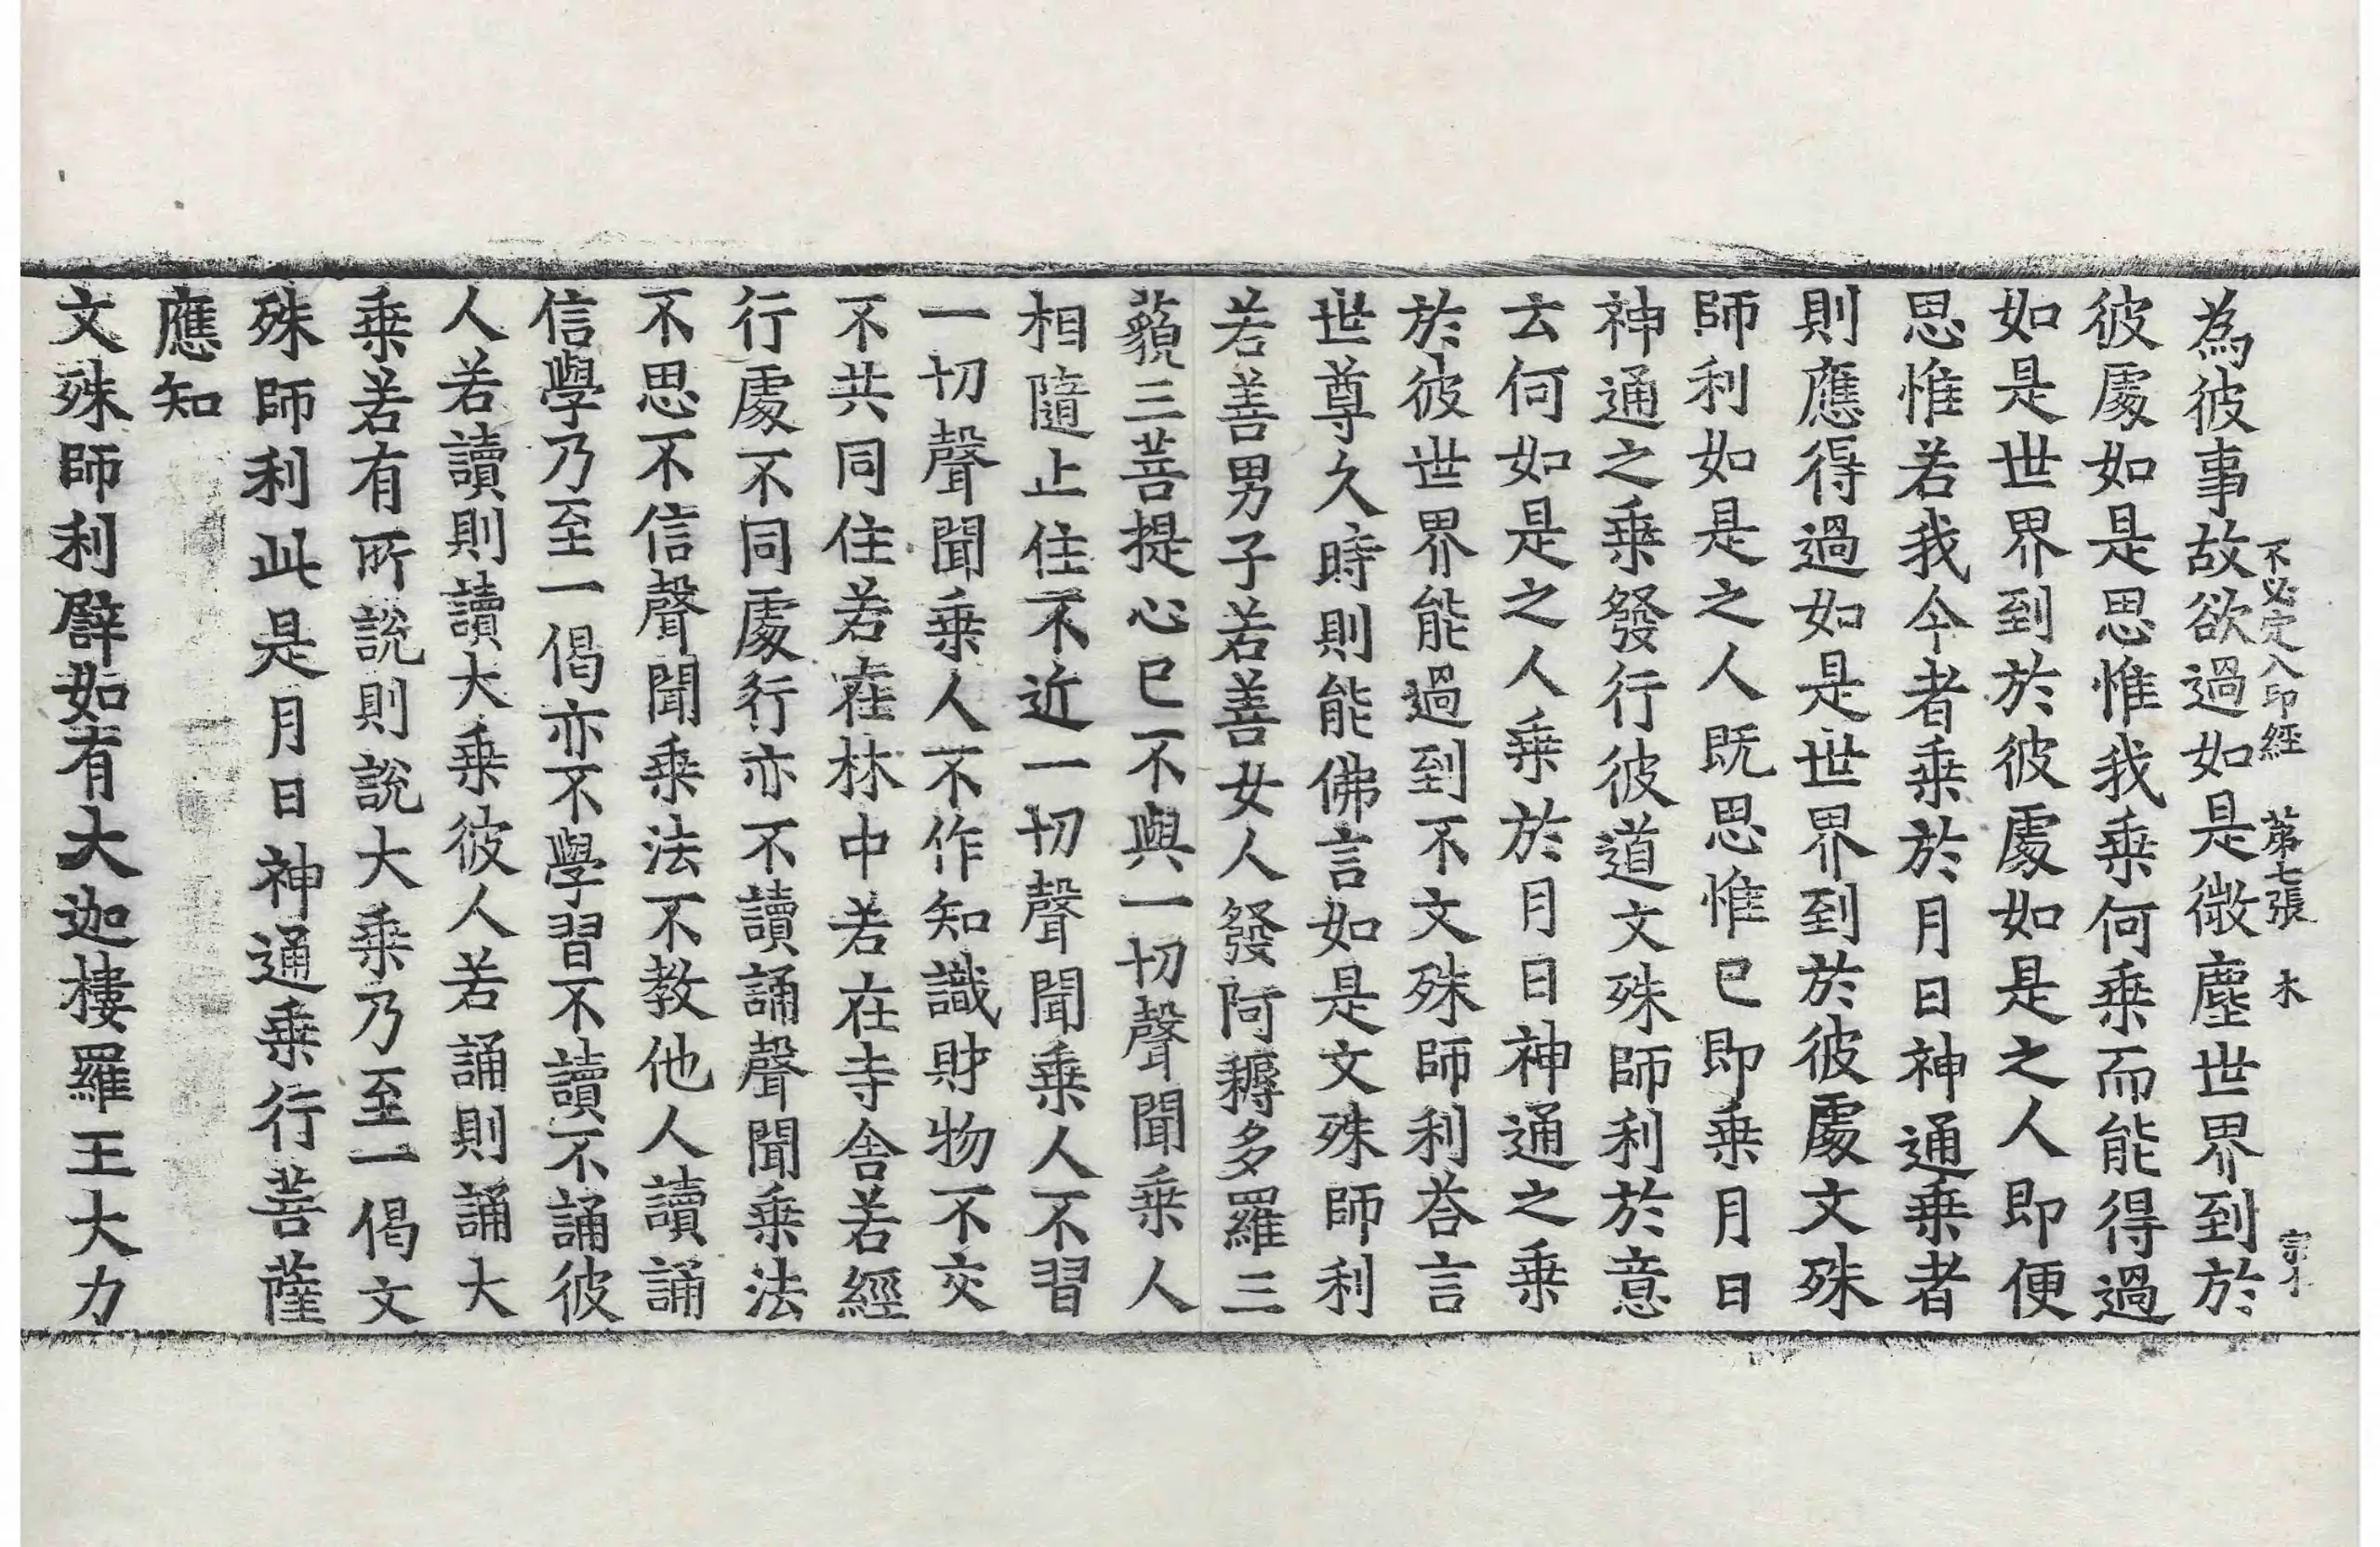 不必定入印經 第七張 木
為彼事故欲過如是微塵世界到於
彼處如是思惟我乗何乗而能得過
如是世界到於彼處如是之人即便
思惟若我今者乗於月日神通乗者
則應得過如是世界到於彼處文殊
師利如是之人既思惟已即乗月日
神通之乗發行彼道文殊師利於意
云何如是之人乗於月日神通之乗
於彼世界能過到不文殊師利荅言
世尊久時則能佛言如是文殊師利
若善男子若善女人發阿耨多羅三
藐三菩提心已不與一切聲聞乗人
相隨止住不近一切聲聞乗人不習
一切聲聞乗人不作知識財物不交
不共同住若在林中若在寺舍若經
行處不同處行亦不讀誦聲聞乗法
不思不信聲聞乗法不教他人讀誦
信學乃至一偈亦不學習不讀不誦彼
人若讀則讀大乗彼人若誦則誦大
乗若有所說則說大乗乃至一偈文
殊師利此是月日神通乗行菩薩
應知
文殊師利辟如有大迦樓羅王大力